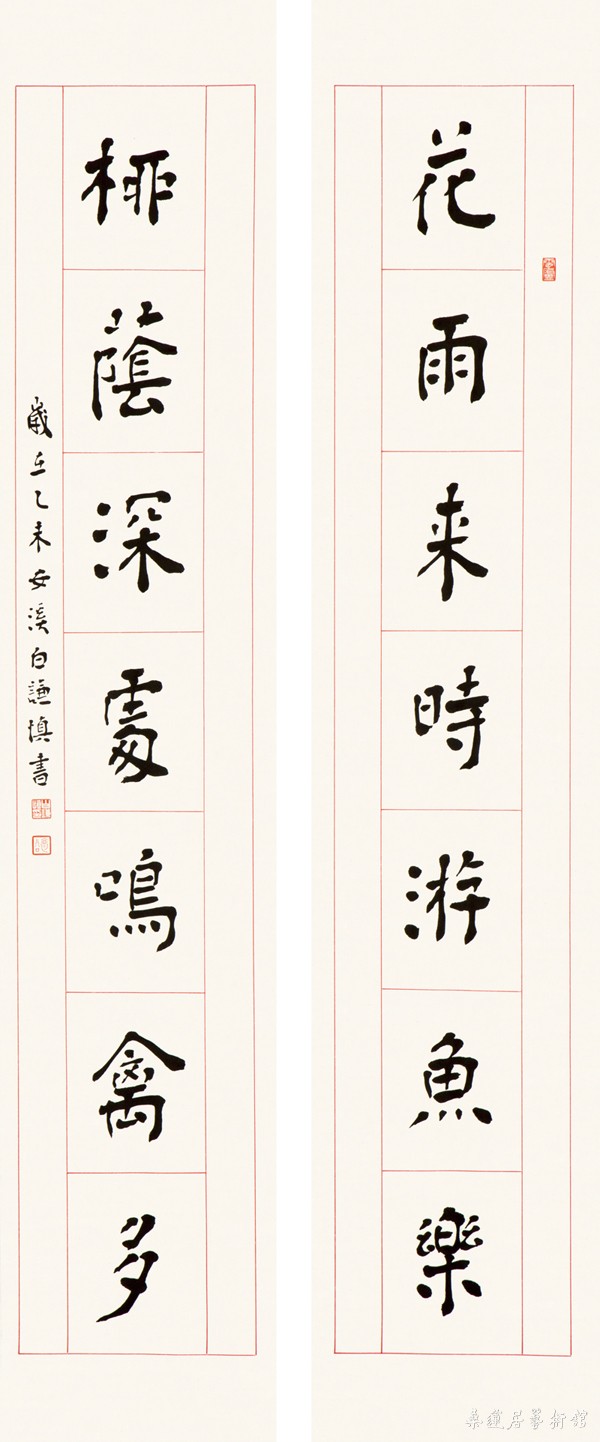 花雨来時游魚樂
桺蔭深處鳴禽多
歲在乙未安溪白謙慎書
桑蓮居藝術館